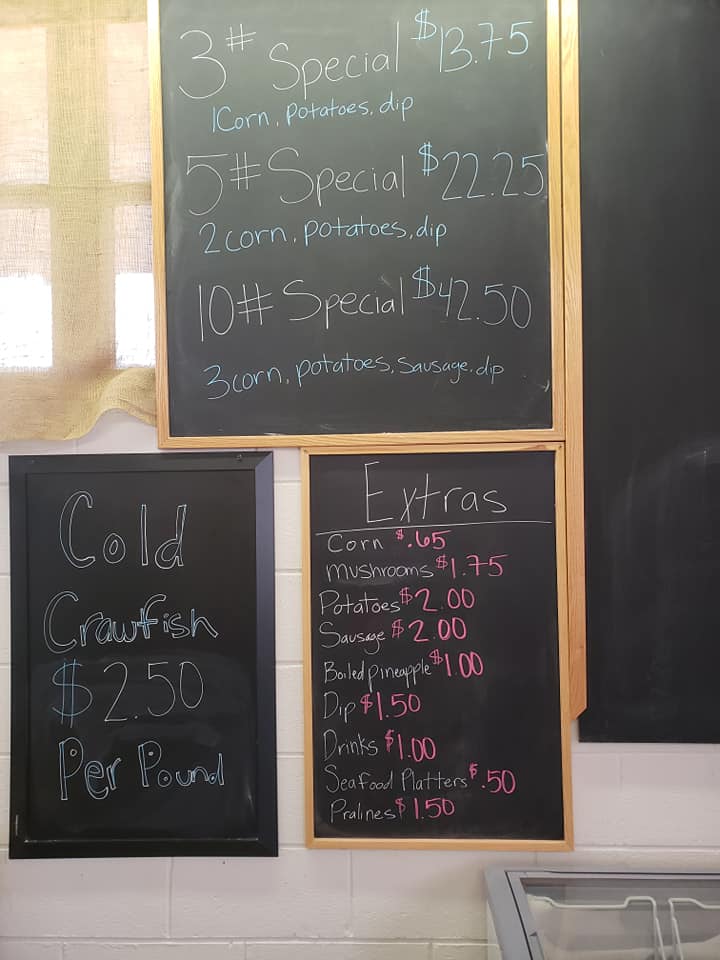 3# Special $13.75
1Corn, potatoes, dip
5# Special $22.25
2 corn, potatoes, dip
10# Special $42.50
3 corn, potatoes, Sausage, dip
Cold
Crawfish
$2.50
Per Pound
Extras
Corn $.65
mushrooms $1.75
Potatoes $2.00
Sausage $2.00
Boiled pineapple $1.00
Dip $1.50
Drinks $1.00
Seafood Platters $.50
Pralines $1.50